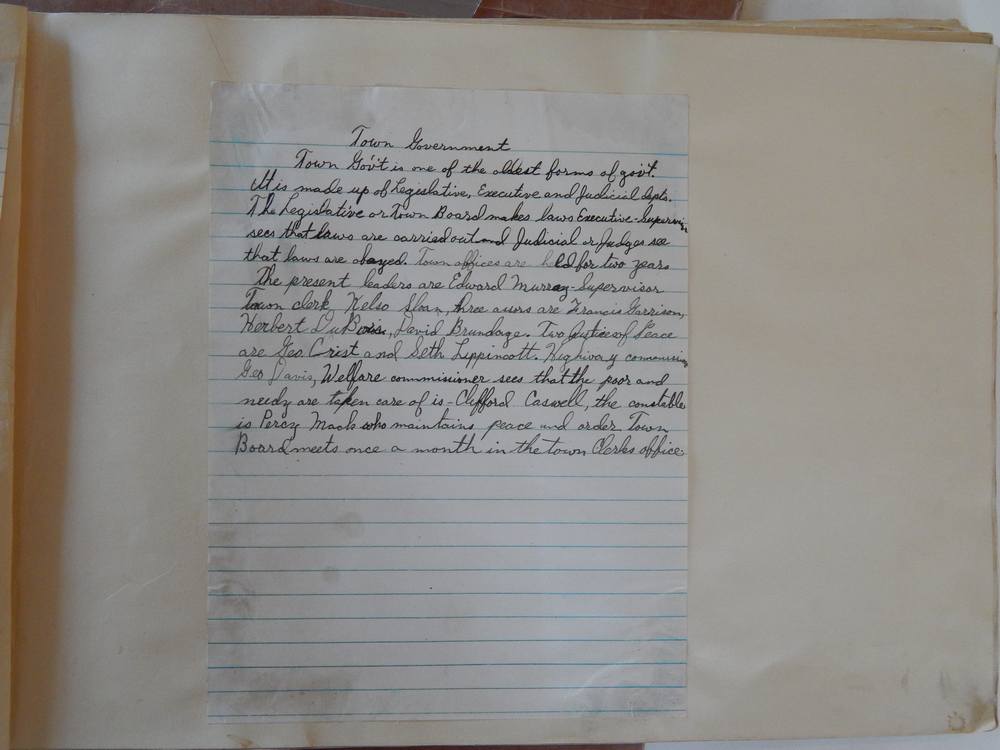 Town Government
Town Gov't is one of the oldest forms of gov't.
It is made up of Legislative, Executive and Judicial depts.
The Legislative or Town Board makes laws Executive-Supervi
sees that laws are carried out and Judicial or Judges see
that laws are obayed. Town offices are held for two years
The present leaders are Edward Murray-Supervisor
Town clerk Kelso Sloan, three are Francis Garrison,
Herbert DuBois, David Brundage. Two Justice of Peace
are Geo. Crist and Seth Lippincott. Highway
Geo Davis, Welfare commisioner sees that the poor and
needy are taken care of is - Clifford Caswell, the constable
is Percy Mack who maintains peace and order Town
Board meets once a month in the town Clerks office.